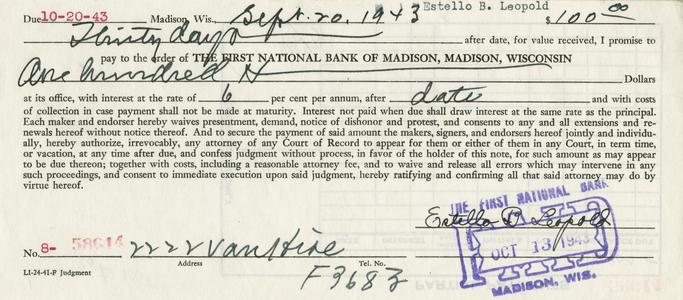 Estello B. Leopold
Due 10-20-43 Madison, Wis., Sept. 20, 1943 $100.00
Thirty days after date, for value received, I promise to
pay to the order of THE FIRST NATIONAL BANK OF MADISON, MADISON, WISCONSIN
One hundred Dollars
at its office, with interest at the rate of 6 per cent per annum, after date and with costs
of collection in case payment shall not be made at maturity. Interest not paid when due shall draw interest at the same rate as the principal.
Each maker and endorser hereby waives presentment, demand, notice of dishonor and protest, and consents to any and all extensions and re-
newals hereof without notice thereof. And to secure the payment of said amount the makers, signers, and endorsers hereof jointly and individu-
ally, hereby authorize, irrevocably, any attorney of any Court of Record to appear for them or either of them in any Court, in term time,
or vacation, at any time after due, and confess judgment without process, in favor of the holder of this note, for such amount as may appear
to be due thereon; together with costs, including a reasonable attorney fee, and to waive and release all errors which may intervene in any
such proceedings, and consent to immediate execution upon said judgment, hereby ratifying and confirming all that said attorney may do by
virtue hereof.
THE FIRST NATIONAL BANK
Estello B. Leopold
OCT 13 1943
MADISON, WIS.
No. 8- 58614 2222 Van Hise
Address Tel. No.
LI-24-41-F Judgment F3683